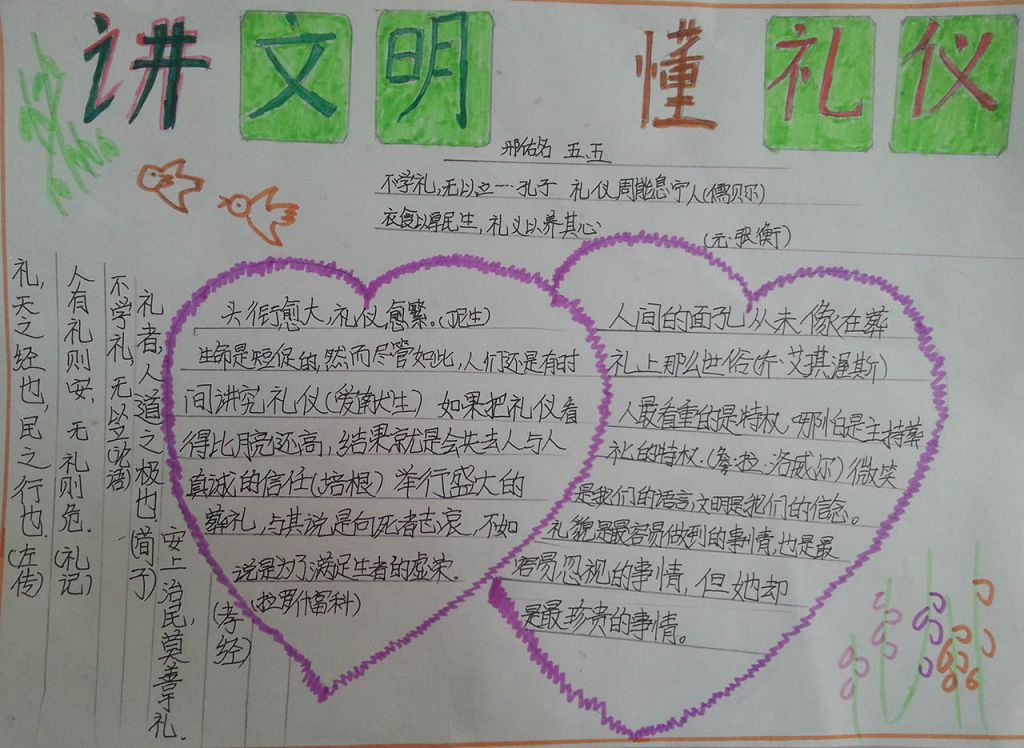 讲文明 懂礼仪
邢佑名 五.五
不学礼,无以立---孔子 礼仪周能息宁人(儒贝尔)
衣食以厚民生,礼义以养其心 (元·张衡)
礼,天之经也,民之行也.(左传)
人有礼则安,无礼则危.(礼记)
不学礼,无以立(论语)
礼者,人道之极也.(荀子)
安上治民,莫善于礼.
(孝经)
头衔愈大,礼仪愈繁。(呢生)
生命是短促的,然而尽管如此,人们还是有时
间讲究礼仪(爱献生) 如果把礼仪看
得比月亮还高,结果就是会失去人与人
真诚的信任(培根) 举行盛大的
葬礼,与其说是向死者志哀,不如
说是为了满足生者的虚荣.
(拉罗什富科)
人间的面孔从未像在葬
礼上那么世俗(乔·艾琪渥斯)
人最看重的是特权,哪怕是主持葬
礼的特权.(詹·拉·洛威尔)微笑
是我们的语言,文明是我们的信念。
礼貌是最容易做到的事情,也是最
容易忽视的事情,但她却
是最珍贵的事情。